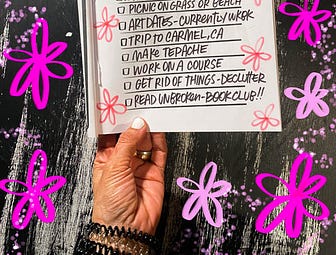 PICNIC ON GRASS OR BEACH
ART DATES-CURRENTLY WRGK
TRIP TO CARMEL, CA
MAKE TEPACHE
WORK ON A COURSE
GET RID OF THINGS-DECLUTTER
READ UNBROKEN-BOOK CLUB!!